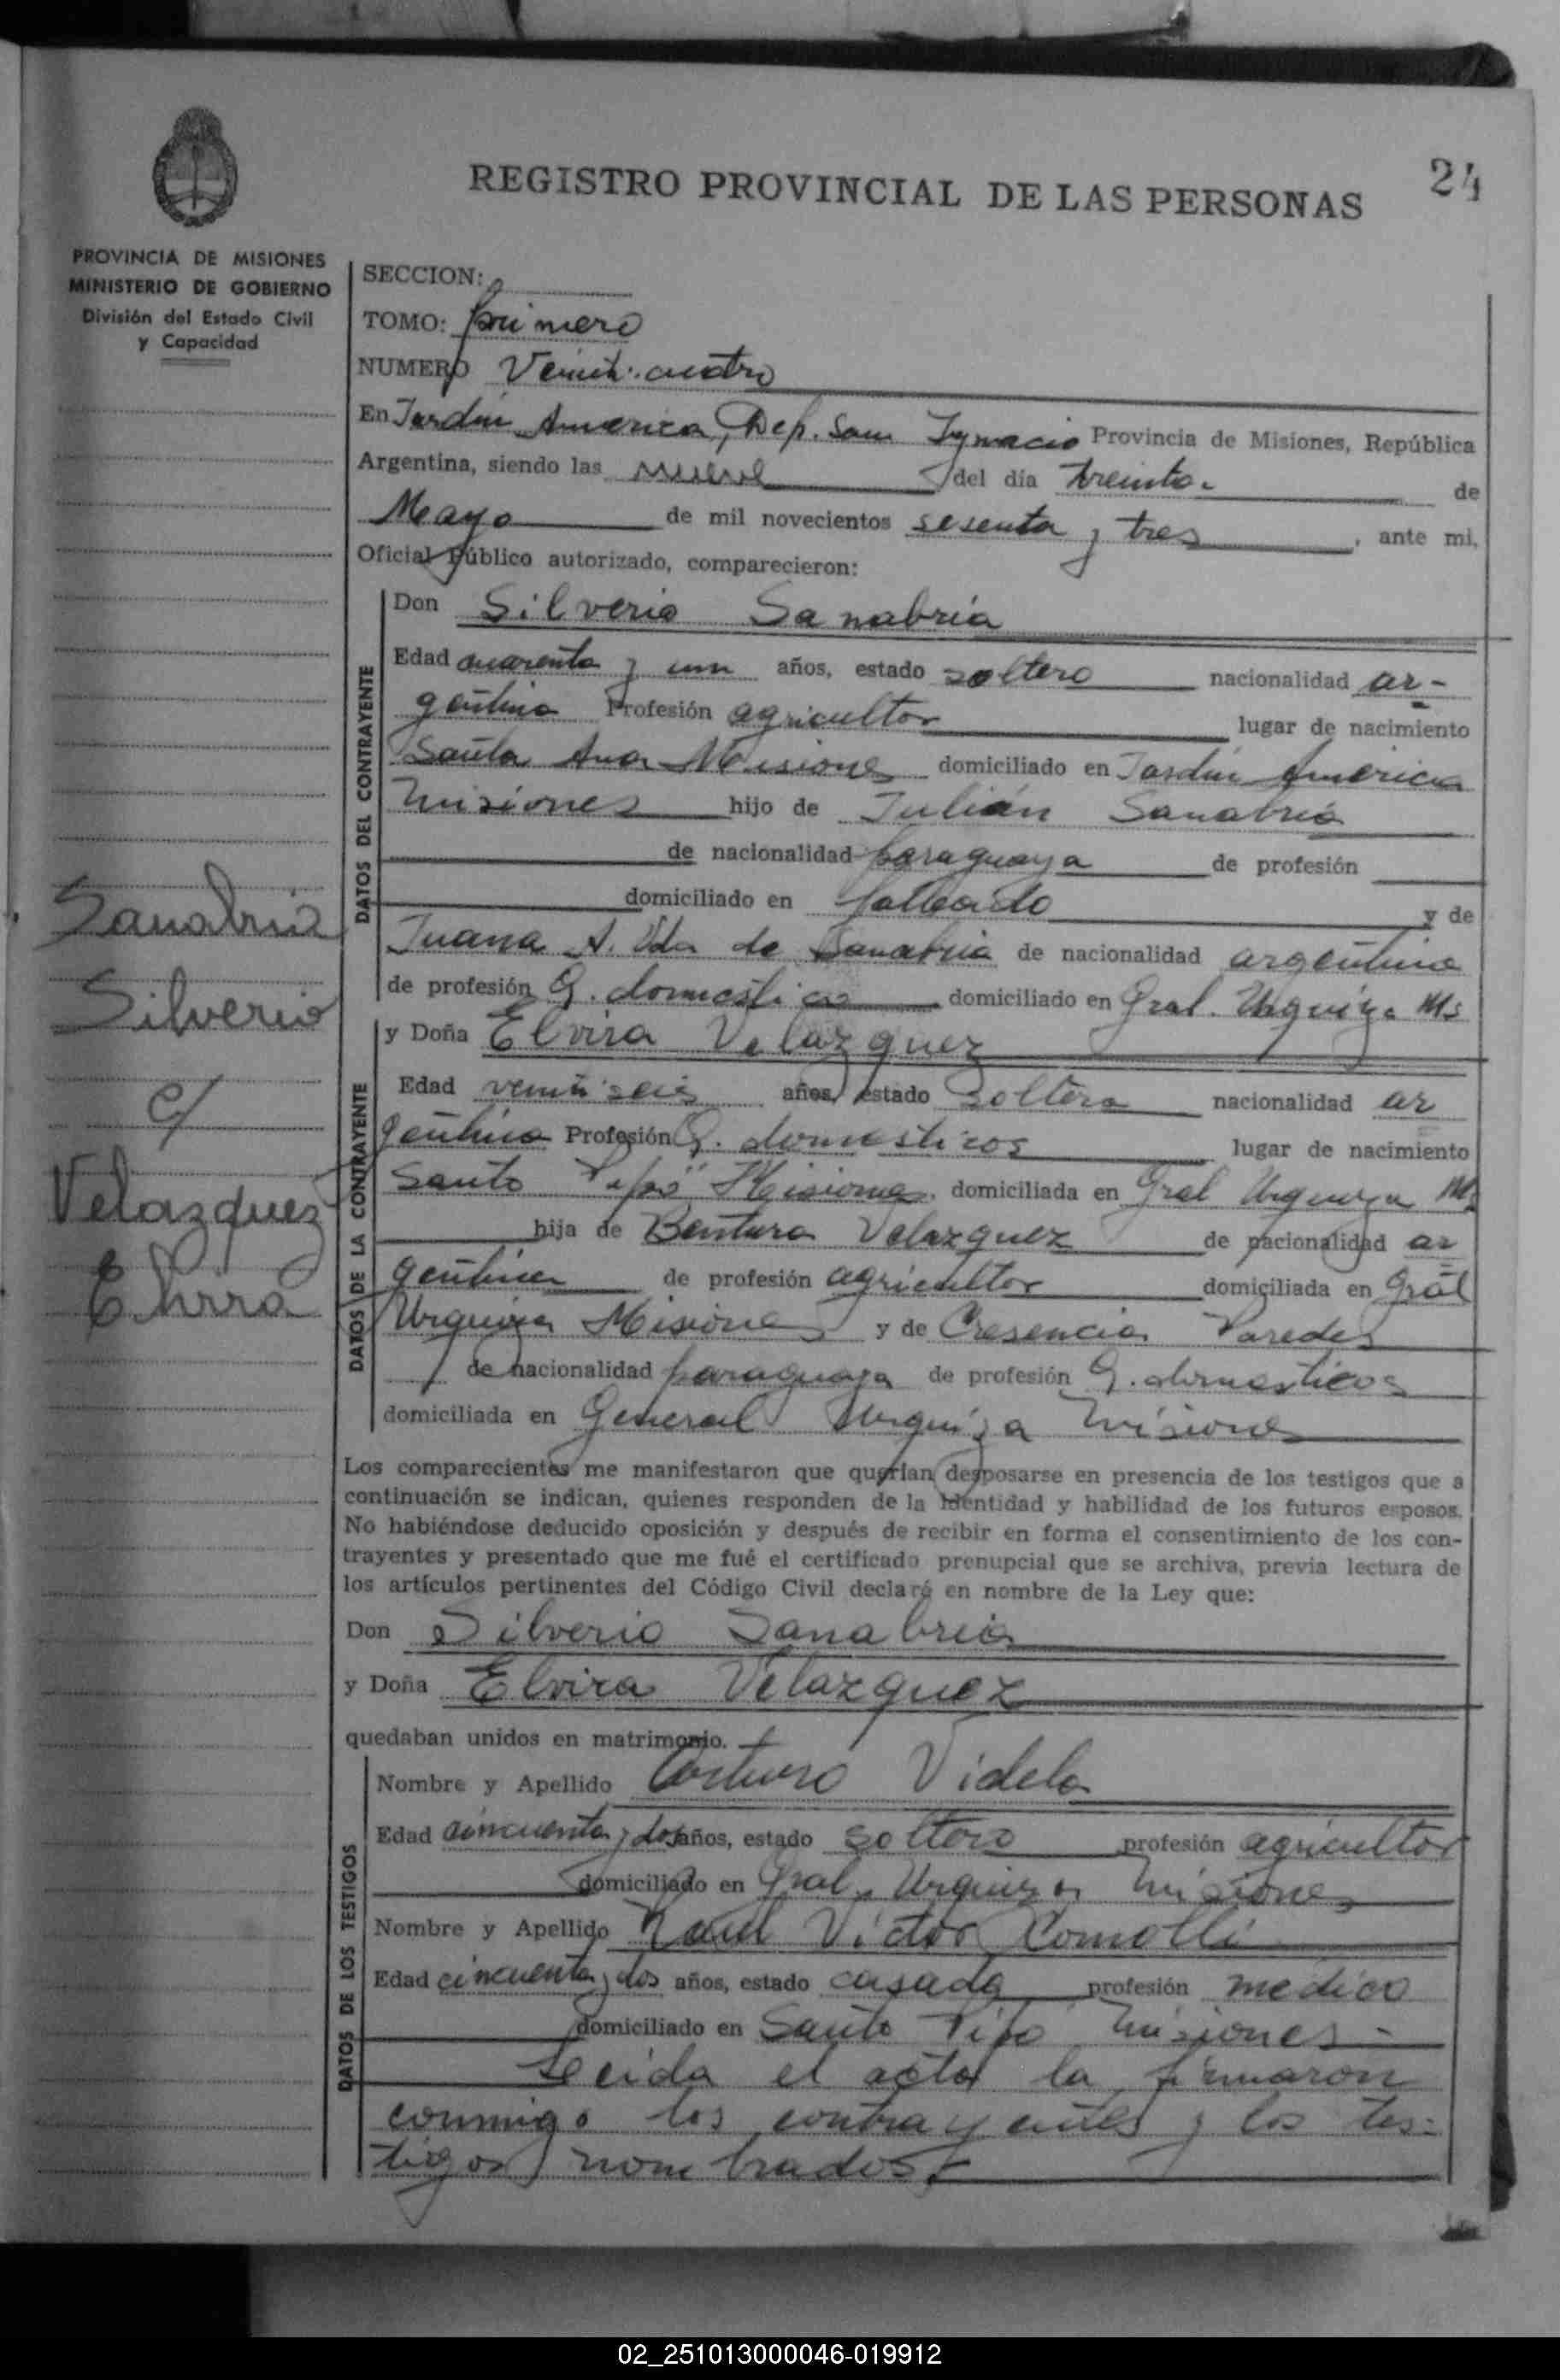 24
REGISTRO PROVINCIAL DE LAS PERSONAS
PROVINCIA DE MISIONES
MINISTERIO DE GOBIERNO
División del Estado Civil
y Capacidad
SECCION:
TOMO: primero
NUMERO Veinti cuatro
En Jardin America, Dep. San Ygnacio Provincia de Misiones, República
Argentina, siendo las nueve del día treinta de
Mayo de mil novecientos sesenta y tres, ante mi,
Oficial Público autorizado, comparecieron:
DATOS DEL CONTRAYENTE
Don Silverio Sanabria
Edad cuarenta y un años, estado soltero nacionalidad ar-
gentino Profesión agricultor lugar de nacimiento
Santa Ana Misiones domiciliado en Jardin America
Misiones hijo de Julián Sanabria
de nacionalidad paraguaya de profesión
domiciliado en fallecido y de
Juana A. Vda de Sanabria de nacionalidad argentina
de profesión Q. domesticos domiciliado en Gral. Urquiza Ms
Sanabria
Silverio
c/
Velazquez
Elvira
DATOS DE LA CONTRAYENTE
y Doña Elvira Velazquez
Edad veinti seis años, estado soltera nacionalidad ar
gentina Profesión Q. domesticos lugar de nacimiento
Santo Pipó Misiones, domiciliada en Gral Urquiza Ms
hija de Bentura Velazquez de nacionalidad ar
gentina de profesión agricultor domiciliada en Gral
Urquiza Misiones y de Cresencia Paredes
de nacionalidad paraguaya de profesión Q. domesticos
domiciliada en General Urquiza Misiones
Los comparecientes me manifestaron que querían desposarse en presencia de los testigos que a
continuación se indican, quienes responden de la identidad y habilidad de los futuros esposos.
No habiéndose deducido oposición y después de recibir en forma el consentimiento de los con-
trayentes y presentado que me fué el certificado prenupcial que se archiva, previa lectura de
los artículos pertinentes del Código Civil declaré en nombre de la Ley que:
Don Silverio Sanabria
y Doña Elvira Velazquez
quedaban unidos en matrimonio.
DATOS DE LOS TESTIGOS
Nombre y Apellido Arturo Videla
Edad cincuenta y dos años, estado soltero profesión agricultor
domiciliado en Gral. Urquiza Misiones
Nombre y Apellido Raul Victor Comolli
Edad cincuenta y dos años, estado casado profesión medico
domiciliado en Santo Pipo Misiones-
Leida el acta la firmaron
conmigo los contrayentes y los tes-
tigos nombrados
02_251013000046-019912